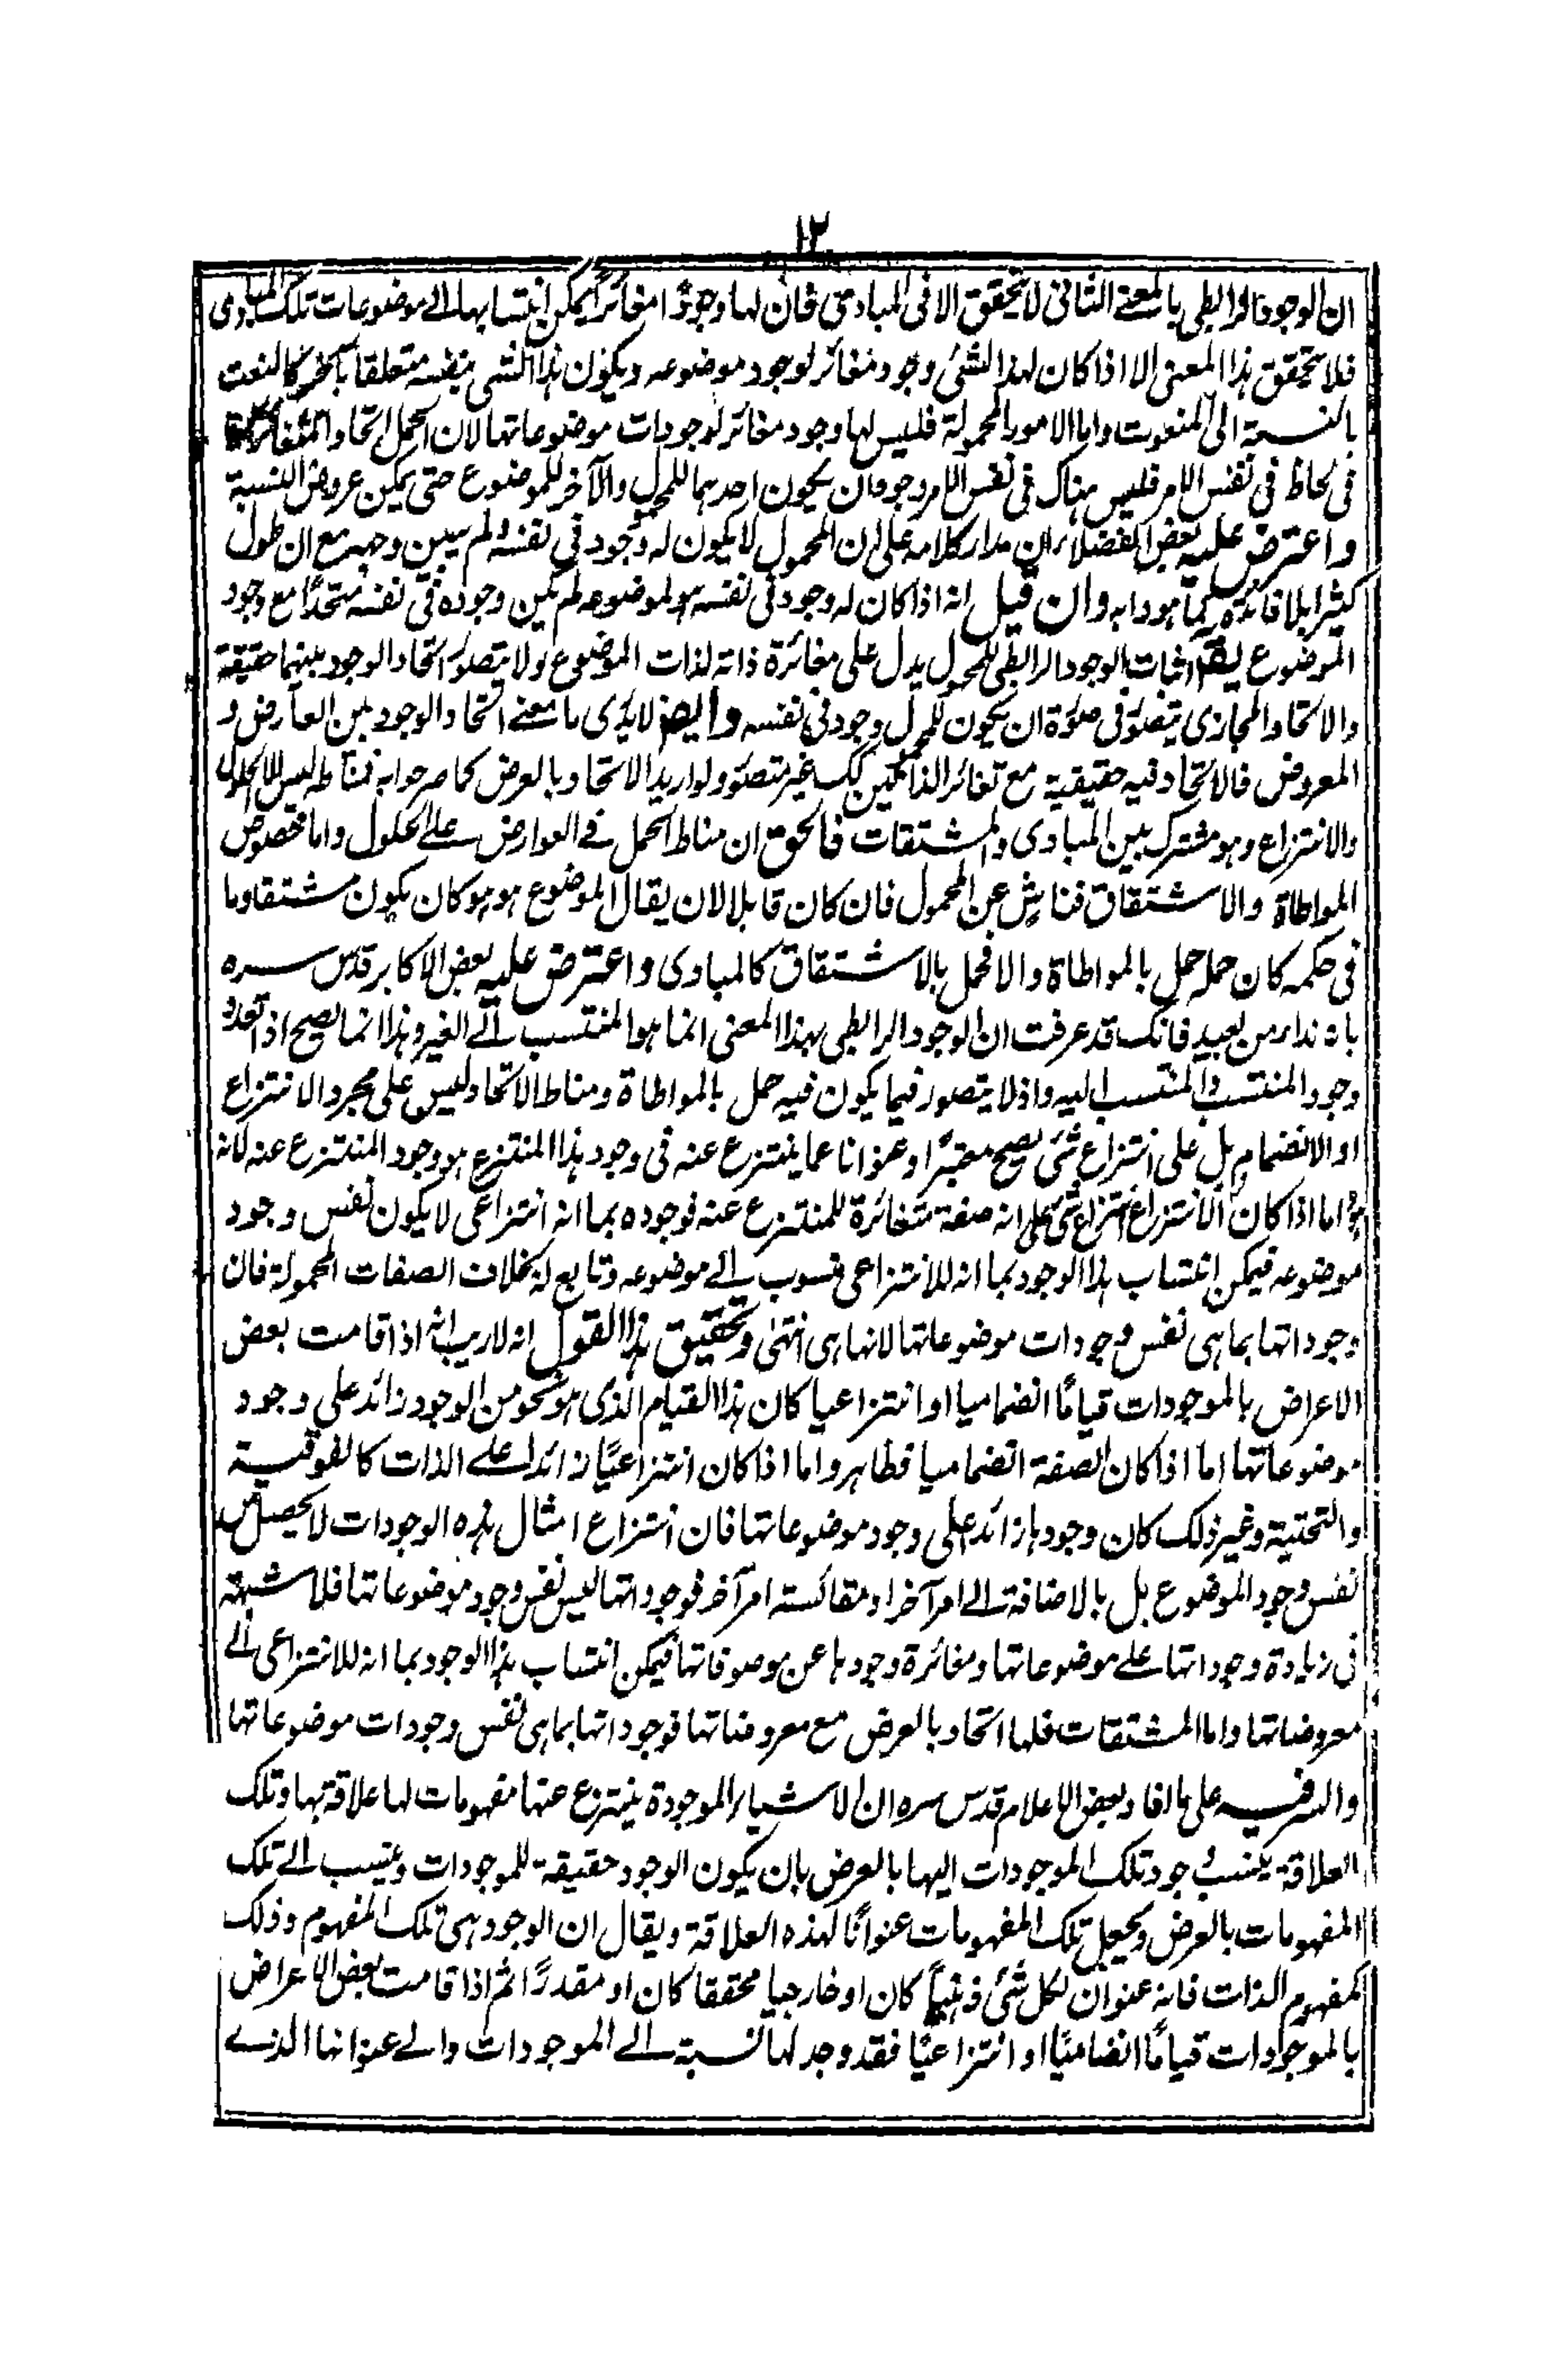 ١٢
ان الوجود الرابطى بالمعنے الثانى لا يتحقق الا فى المبادى فان لها وجودًا مغائرًا يمكن انتسابها الے موضوعات تلك المبادى
فلا يتحقق هذا المعنى الا اذا كان لهذا الشئ وجود مغائر لوجود موضوعه ويكون هذا الشى بنفسه متعلقا بآخر كالنعت
بالنسبة الى المنعوت واما الامور المحمولة فليس لها وجود مغائر لوجودات موضوعاتها لان الحمل اتحاد المتغائرين
فى لحاظ فى نفس الامر فليس هناك فى نفس الامر وجودان يكون احدهما للمحمول والآخر للموضوع حتى يمكن عروض النسبة
واعترض عليه بعض الفضلاء بان مدار كلامه على ان المحمول لا يكون له وجود فى نفسه ولم يبين وجهه مع ان طول
كثيرا بلا فائدة كما هو دابه وان قيل انه اذا كان له وجود فى نفسه هو لموضوعه لم يكن وجوده فى نفسه متحدًا مع وجود
الموضوع يقال اثبات الوجود الرابطى للمحمول يدل على مغائرة ذاته لذات الموضوع ولا يتصور اتحاد الوجود بينهما حقيقة
والاتحاد المجازى يتصور فى صورة ان يكون للمحمول وجود فى نفسه وايضا لا يدرى ما معنے اتحاد الوجود بين العارض و
المعروض فالاتحاد فيه حقيقية مع تغائر الذاتين كك غير متصور ولو اريد الاتحاد بالعرض كما صرحوا به فمناطه ليس الا الحلول
والانتزاع وهو مشترك بين المبادى والمشتقات فالحق ان مناط الحمل فے العوارض علے الحلول واما خصوص
المواطاة والاشتقاق فناش عن المحمول فان كان قابلا لان يقال الموضوع هو هو كان يكون مشتقا وما
فى حكمه كان حمله حمل بالمواطاة والا فحمل بالاشتقاق كالمبادى واعترض عليه بعض الاكابر قدس سره
بان نداء من بعيد فانك قد عرفت ان الوجود الرابطى بهذا المعنى انما هو المنتسب الے الغير وهذا انما يصح اذا تعدد
وجود المنتسب والمنتسب اليه واذ لا يتصور فيما يكون فيه حمل بالمواطاة ومناط الاتحاد ليس على مجرد الانتزاع
او الانضمام بل على انتزاع شئ يصح معتبرًا وعنوانا عما ينتزع عنه فى وجود هذا المنتزع هو وجود المنتزع عنه لانه
هو اما اذا كان الانتزاع انتزاع شئ على انه صفة متغائرة للمنتزع عنه فوجوده بما انه انتزاعى لا يكون نفس وجود
موضوعه فيمكن انتساب هذا الوجود بما انه للانتزاعى منسوب الے موضوعه وتابع له بخلاف الصفات المحمولة فان
وجوداتها بما هى نفس وجودات موضوعاتها لانها هى انتهى وتحقيق هذا القول انه لا ريب انه اذا قامت بعض
الاعراض بالموجودات قيامًا انضماميا او انتزاعيا كان هذا القيام الذى هو نحو من الوجود زائد على وجود
موضوعاتها اما اذا كان الصفة انضماميا فظاهر واما اذا كان انتزاعيًا زائدا علے الذات كالفوقية
والتحتية وغير ذلك كان وجودها زائد على وجود موضوعاتها فان انتزاع امثال هذه الوجودات لا يحصل من
نفس وجود الموضوع بل بالاضافة الے امر آخر او مقائسة امر آخر فوجوداتها ليس نفس وجود موضوعاتها فلا شبهة
فى زيادة وجوداتها علے موضوعاتها ومغائرة وجودها عن موصوفاتها فيمكن انتساب هذا الوجود بما انه للانتزاعى الے
معروضاتها واما المشتقات فلما اتحاد بالعرض مع معروضاتها فوجوداتها بما هى نفس وجودات موضوعاتها
والسر فيه على ما افاد بعض الاعلام قدس سره ان الاشياء الموجودة ينتزع عنها مفهومات لها علاقة بها وتلك
العلاقة ينسب وجود تلك الموجودات اليها بالعرض بان يكون الوجود حقيقة للموجودات وينسب الے تلك
المفهومات بالعرض ويجعل تلك المفهومات عنوانًا لهذه العلاقة ويقال ان الوجود هى تلك المفهوم وذلك
كمفهوم الذات فانه عنوان لكل شئ ذهنيًا كان او خارجيا محققا كان او مقدرًا ثم اذا قامت بعض الاعراض
بالموجودات قيامًا انضاميًا او انتزاعيًا فقد وجد لها نسبة الے الموجودات والے عنوانها الذے